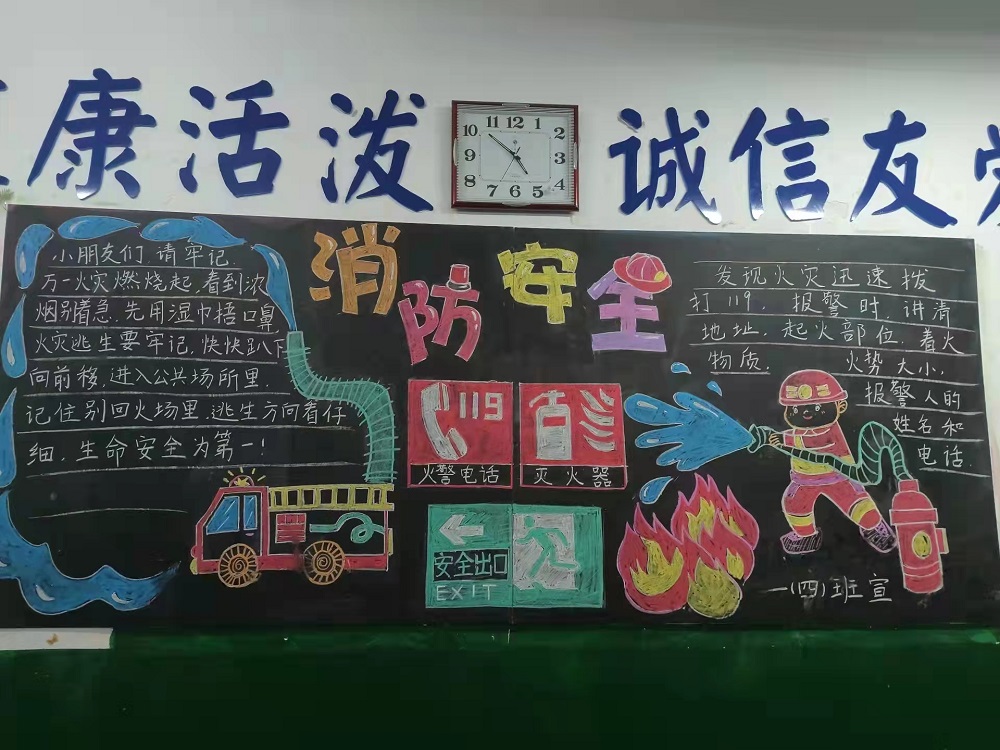 康活泼
诚信友
11 12 1
10 2
9 3
8 4
7 6 5
消防安全
小朋友们 请牢记.
万一火灾燃烧起,看到浓
烟别着急.先用湿巾捂口鼻
火灾逃生要牢记,快快趴下
向前移,进入公共场所里.
记住别回火场里.逃生方向看仔
细.生命安全为第一!
119
火警电话
灭火器
安全出口
EXIT
发现火灾迅速拨
打119.报警时,讲清
地址.起火部位.着火
物质. 火势大小,
报警人的
姓名和
电话.
一(四)班 宣